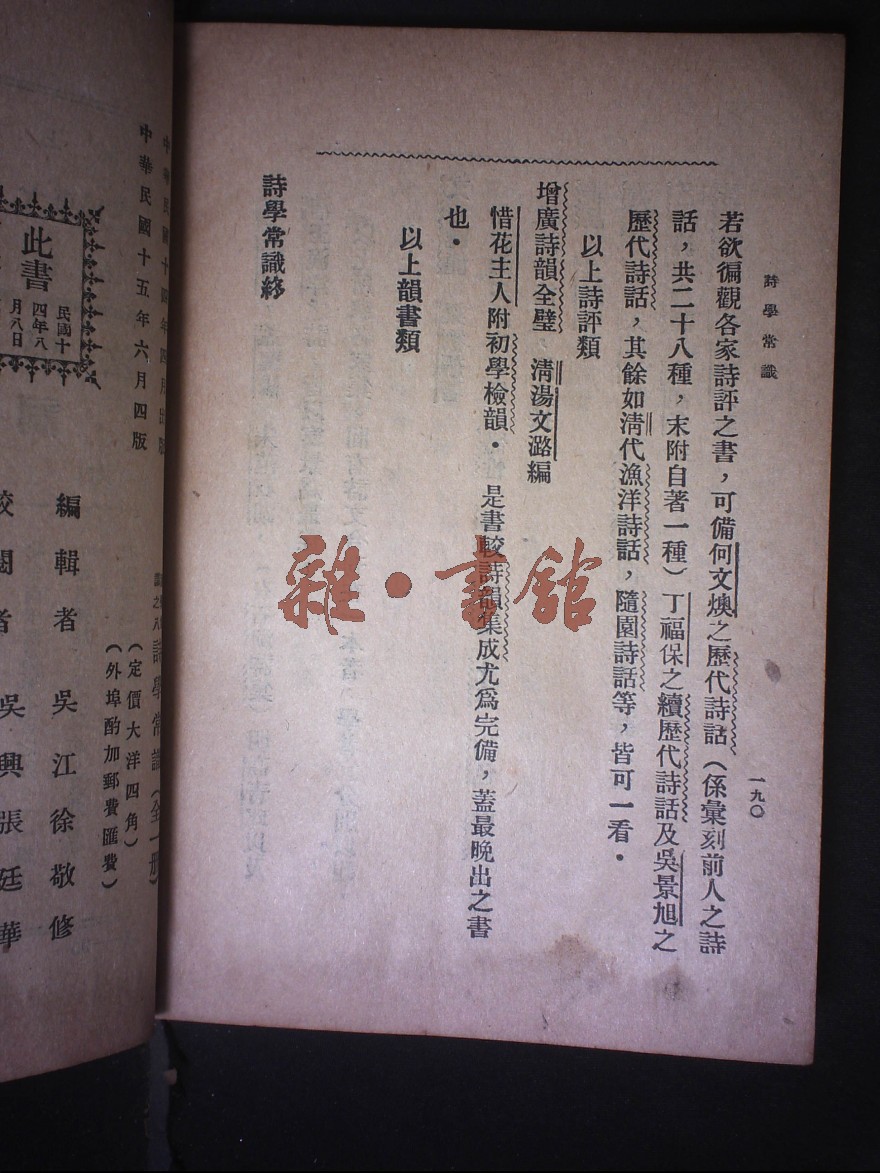 詩學常識
一九〇
若欲徧觀各家詩評之書，可備何文煥之歷代詩話（係彙刻前人之詩
話，共二十八種，末附自著一種）丁福保之續歷代詩話及吳景旭之
歷代詩話，其餘如清代漁洋詩話，隨園詩話等，皆可一看．
以上詩評類
增廣詩韻全璧 清湯文潞編
惜花主人附初學檢韻． 是書較詩韻集成尤爲完備，蓋最晚出之書
也．
以上韻書類
詩學常識終
雜·書館
中華民國十四年四月出版
中華民國十五年六月四版
詩學常識（全一册）
（定價大洋四角）
（外埠酌加郵費匯費）
此書
民國十
四年八
月八日
編輯者 吳江徐敬修
校閱者 吳興張廷華